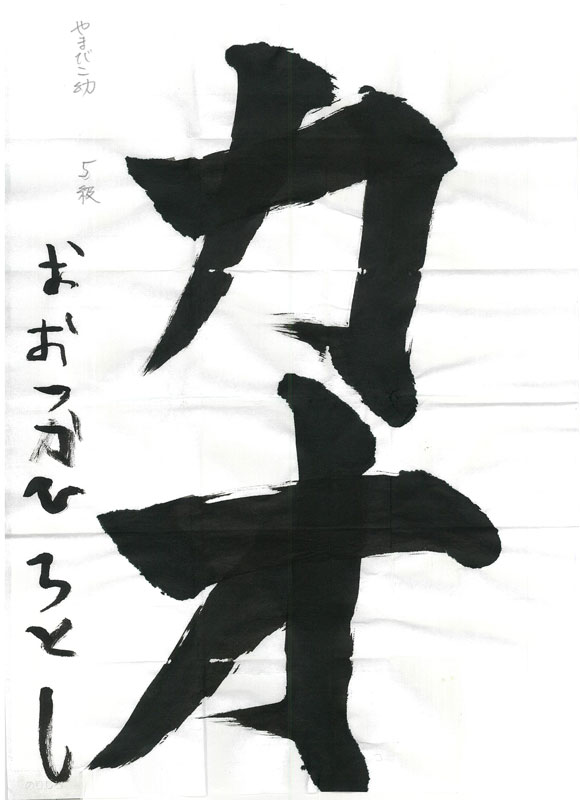 カオ
やまびこ幼 5級
おおつかひろとし